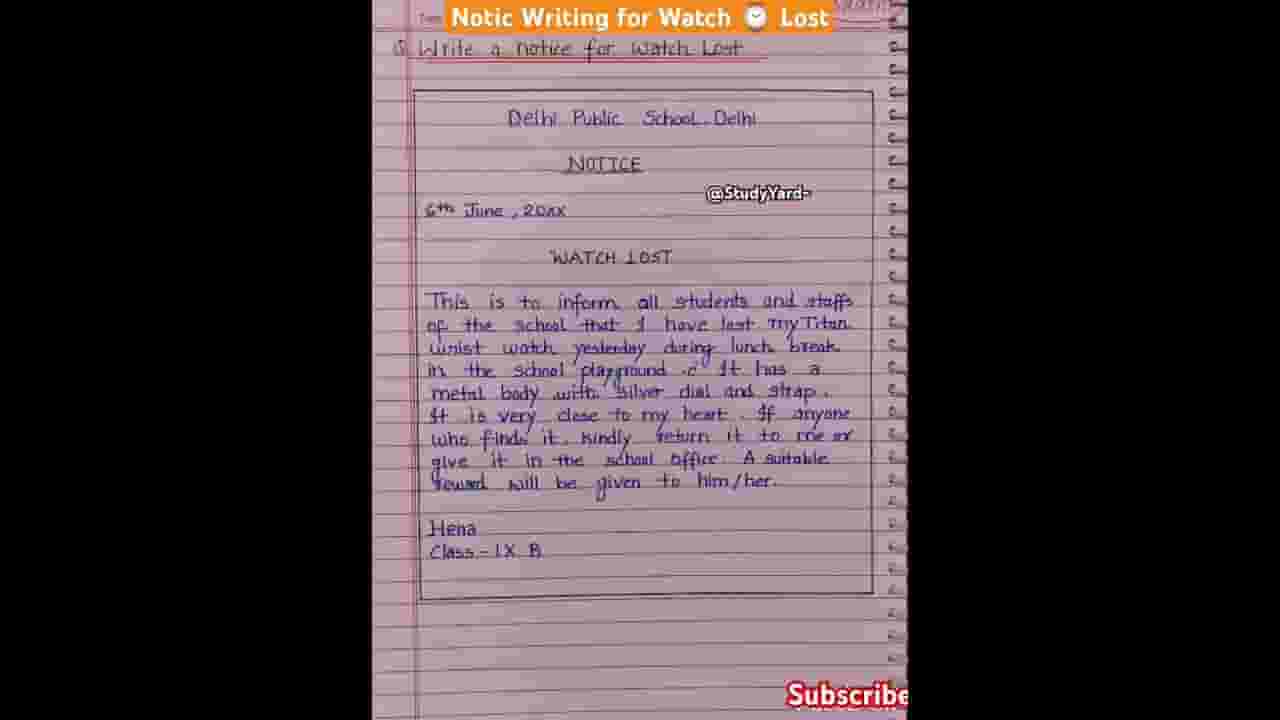 Notic Writing for Watch ⌚ Lost
Q. Write a notice for Watch Lost
Delhi Public School, Delhi
NOTICE
@StudyYard-
6th June, 20xx
WATCH LOST
This is to inform all students and staffs
of the school that I have lost my Titan
wrist watch yesterday during lunch break
in the school playground. It has a
metal body with silver dial and strap.
It is very close to my heart. If anyone
who finds it, kindly return it to me or
give it in the school office. A suitable
reward will be given to him/her.
Hena
Class - IX B
Subscribe